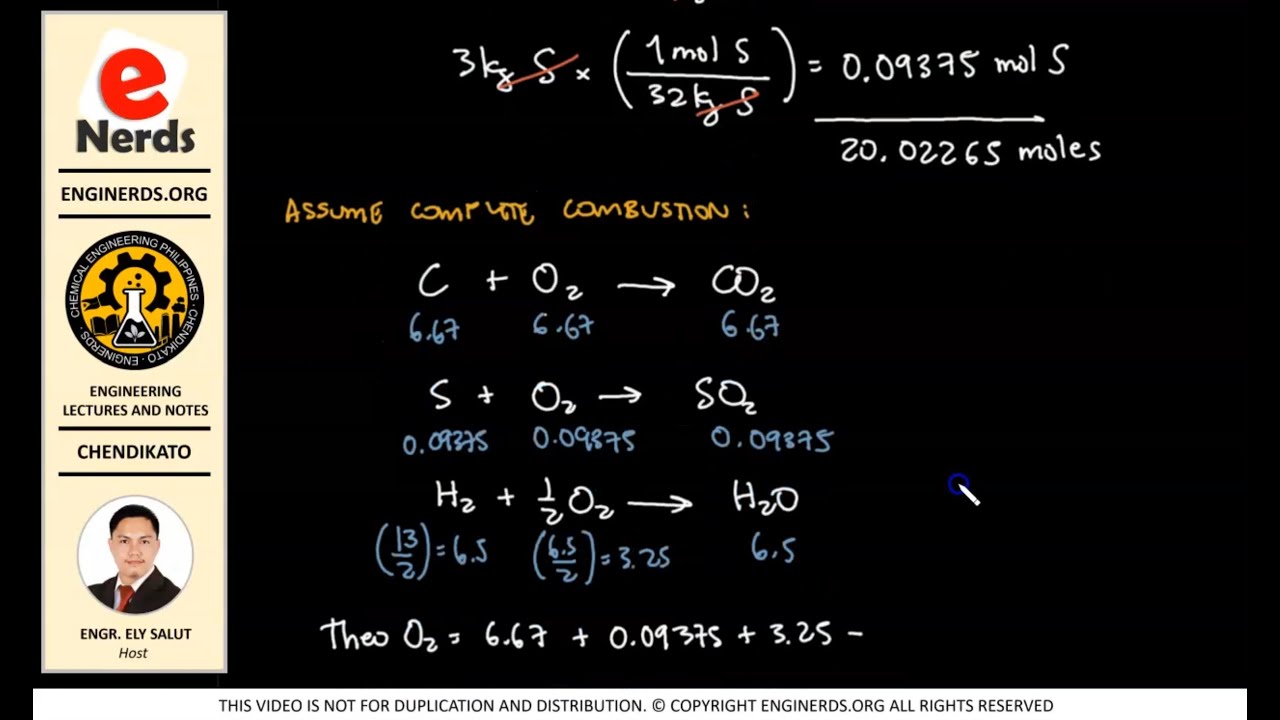 e
Nerds
ENGINERDS.ORG
CHEMICAL ENGINEERING PHILIPPINES · CHENDIKATO · ENGINERDS ·
ENGINEERING
LECTURES AND NOTES
CHENDIKATO
ENGR. ELY SALUT
Host
3kg S × (1 mol S / 32 kg S) = 0.09375 mol S
20.02265 moles
ASSUME COMPLETE COMBUSTION:
C + O₂ → CO₂
6.67 6.67 6.67
S + O₂ → SO₂
0.09375 0.09375 0.09375
H₂ + 1/2 O₂ → H₂O
(13/2) = 6.5 (6.5/2) = 3.25 6.5
Theo O₂ = 6.67 + 0.09375 + 3.25 –
THIS VIDEO IS NOT FOR DUPLICATION AND DISTRIBUTION. © COPYRIGHT ENGINERDS.ORG ALL RIGHTS RESERVED